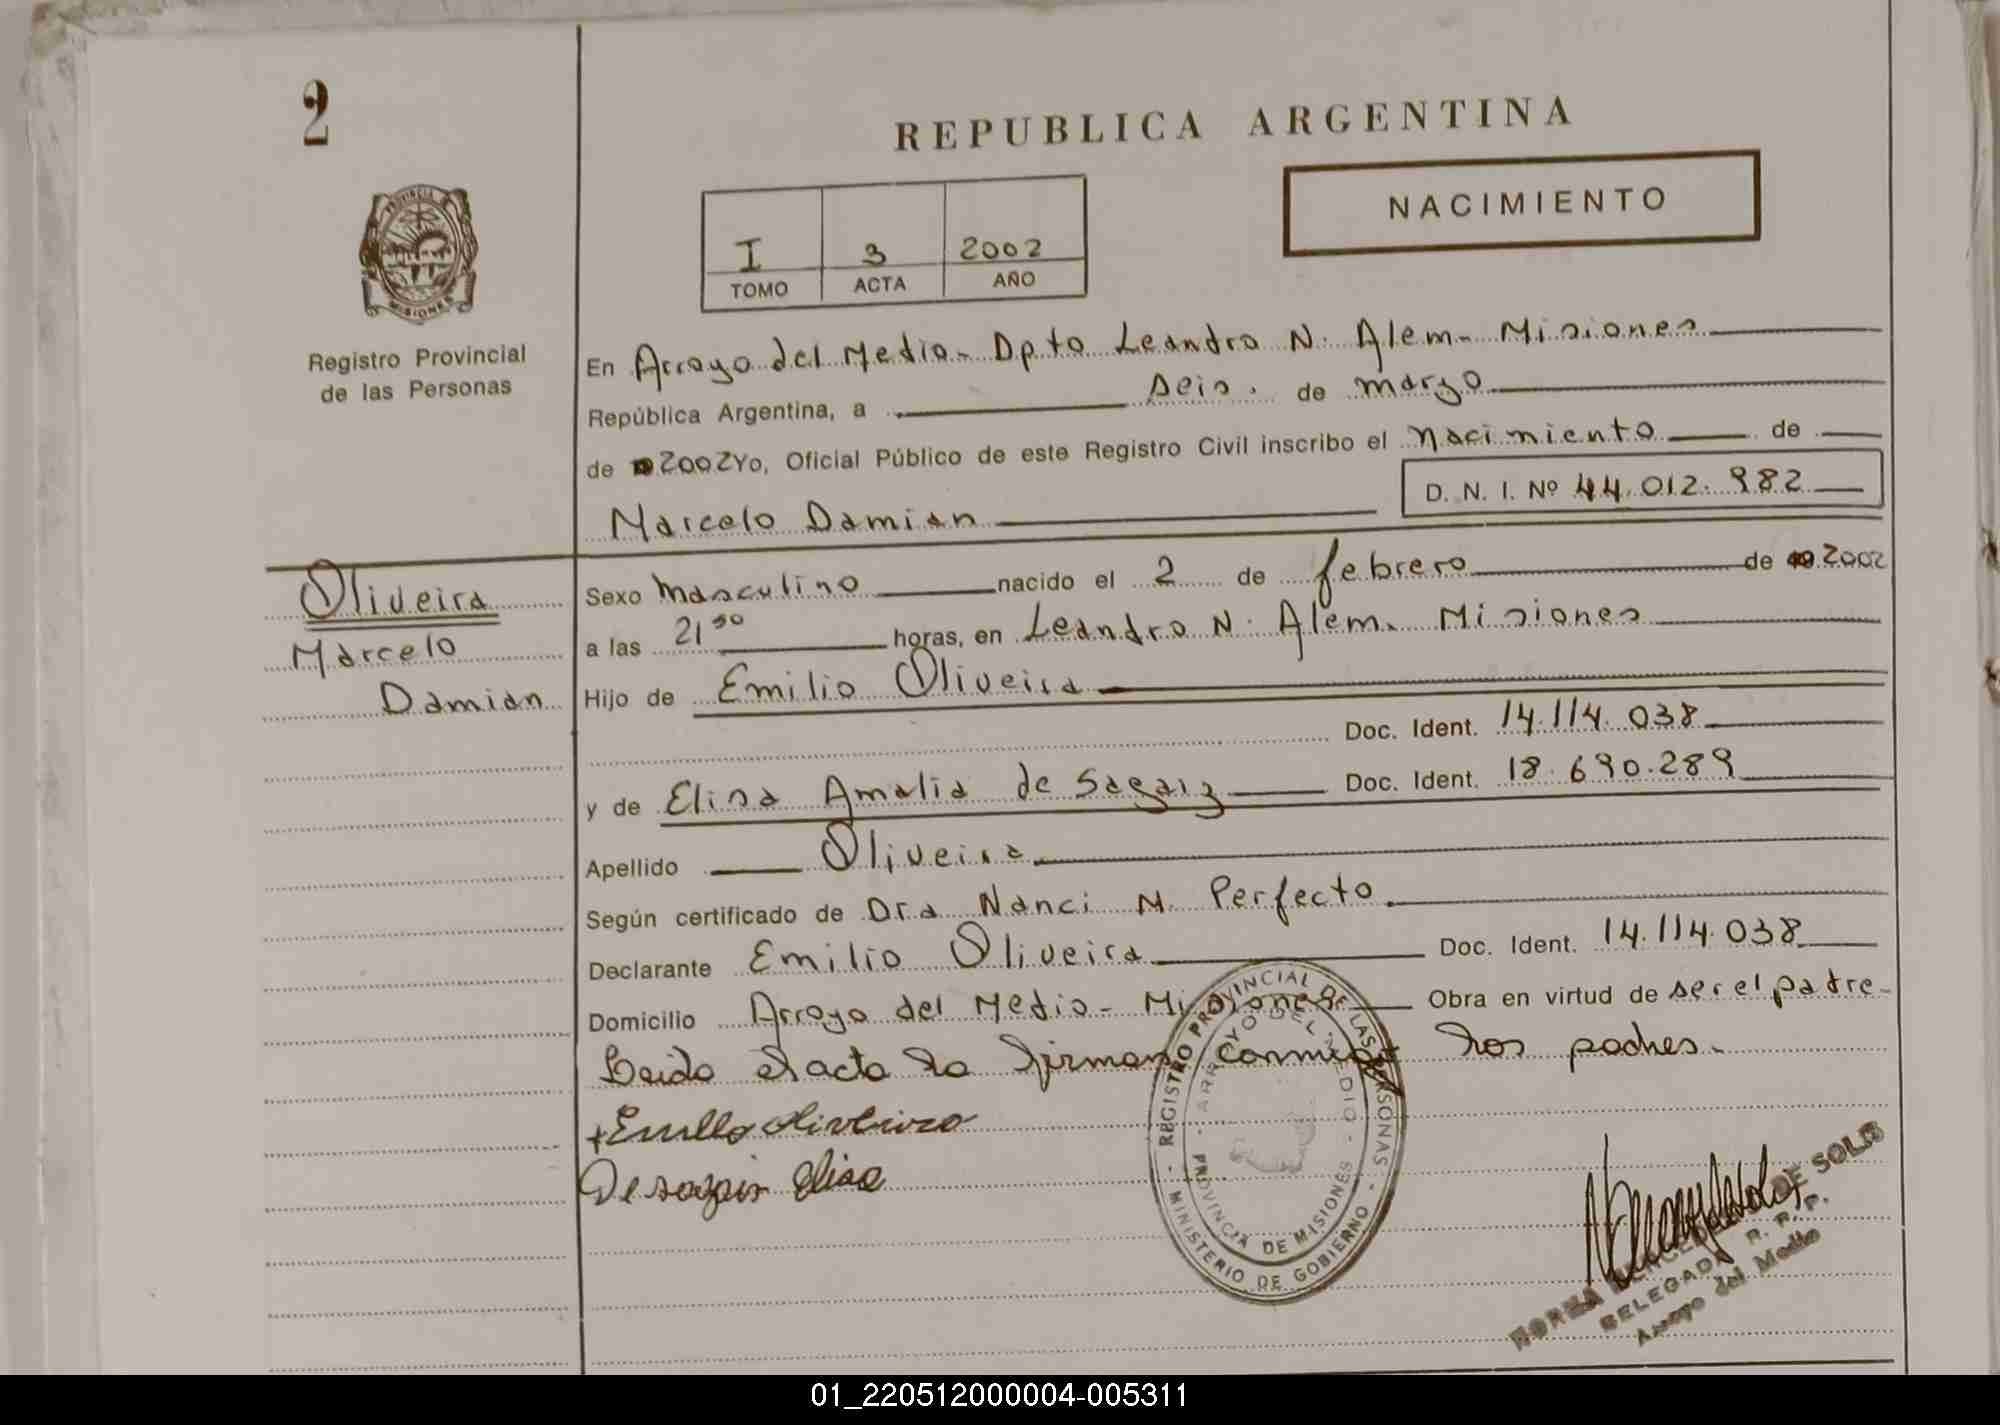 2
REPUBLICA ARGENTINA
NACIMIENTO
PROVINCIA DE
MISIONES
I 3 2002
TOMO ACTA AÑO
Registro Provincial
de las Personas
En Arroyo del Medio - Dpto Leandro N. Alem - Misiones
República Argentina, a seis. de marzo
de 2002 Yo, Oficial Público de este Registro Civil inscribo el nacimiento de
D. N. I. Nº 44.012.982
Marcelo Damian
Oliveira
Marcelo
Damian
Sexo masculino nacido el 2 de febrero de 2002
a las 21 horas, en Leandro N. Alem. Misiones
Hijo de Emilio Oliveira
Doc. Ident. 14.114.038
y de Elisa Amalia de Sagaiz Doc. Ident. 18.690.289
Apellido Oliveira
Según certificado de Dra Nanci N. Perfecto
Declarante Emilio Oliveira Doc. Ident. 14.114.038
Domicilio Arroyo del Medio - Misiones Obra en virtud de ser el padre -
Leido el acta la firman conmigo los padres.
Emilio Oliveira
De sagaiz elisa
REGISTRO PROVINCIAL DE LAS PERSONAS
MINISTERIO DE GOBIERNO
ARROYO DEL MEDIO
PROVINCIA DE MISIONES
NORMA DE SOLA
DELEGADA R. R. P.
Arroyo del Medio
01_220512000004-005311